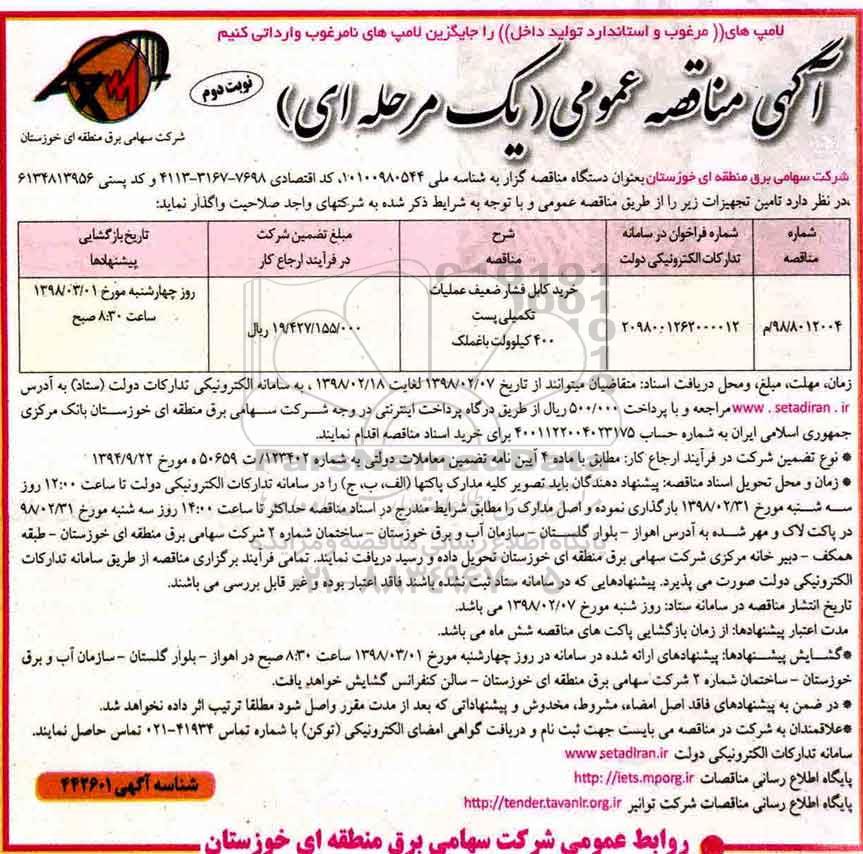 لامپ های(( مرغوب و استاندارد تولید داخل)) را جایگزین لامپ های نامرغوب وارداتی کنیم
آگهی مناقصه عمومی (یک مرحله ای)
نوبت دوم
شرکت سهامی برق منطقه ای خوزستان
شرکت سهامی برق منطقه ای خوزستان بعنوان دستگاه مناقصه گزار به شناسه ملی ۱۰۱۰۰۹۸۰۵۴۴، کد اقتصادی ۷۶۹۸-۳۱۶۷-۴۱۱۳ و کد پستی ۶۱۳۴۸۱۳۹۵۶
در نظر دارد تامین تجهیزات زیر را از طریق مناقصه عمومی و با توجه به شرایط ذکر شده به شرکتهای واجد صلاحیت واگذار نماید:
شماره مناقصه
شماره فراخوان در سامانه تدارکات الکترونیکی دولت
شرح مناقصه
مبلغ تضمین شرکت در فرآیند ارجاع کار
تاریخ بازگشایی پیشنهادها
۹۸/۸۰۱۲۰۰۴/م
۲۰۹۸۰۰۱۲۶۲۰۰۰۰۱۲
خرید کابل فشار ضعیف عملیات
تکمیلی پست
۴۰۰ کیلوولت باغملک
۱۹/۴۲۷/۱۵۵/۰۰۰ ریال
روز چهارشنبه مورخ ۱۳۹۸/۰۳/۰۱
ساعت ۸:۳۰ صبح
زمان، مهلت، مبلغ، ومحل دریافت اسناد: متقاضیان میتوانند از تاریخ ۱۳۹۸/۰۲/۰۷ لغایت ۱۳۹۸/۰۲/۱۸ ، به سامانه الکترونیکی تدارکات دولت (ستاد) به آدرس
www . setadiran . ir مراجعه و با پرداخت ۵۰۰/۰۰۰ ریال از طریق درگاه پرداخت اینترنتی در وجه شرکت سهامی برق منطقه ای خوزستان بانک مرکزی
جمهوری اسلامی ایران به شماره حساب ۴۰۰۱۱۲۲۰۰۴۰۲۳۱۷۵ برای خرید اسناد مناقصه اقدام نمایند.
* نوع تضمین شرکت در فرآیند ارجاع کار: مطابق با ماده ۴ آیین نامه تضمین معاملات دولتی به شماره ۱۲۳۴۰۲/ت ۵۰۶۵۹ ه مورخ ۱۳۹۴/۹/۲۲
* زمان و محل تحویل اسناد مناقصه: پیشنهاد دهندگان باید تصویر کلیه مدارک پاکتها (الف، ب، ج) را در سامانه تدارکات الکترونیکی دولت تا ساعت ۱۲:۰۰ روز
سه شنبه مورخ ۱۳۹۸/۰۲/۳۱ بارگذاری نموده و اصل مدارک را مطابق شرایط مندرج در اسناد مناقصه حداکثر تا ساعت ۱۴:۰۰ روز سه شنبه مورخ ۹۸/۰۲/۳۱
در پاکت لاک و مهر شده به آدرس اهواز - بلوار گلستان - سازمان آب و برق خوزستان - ساختمان شماره ۲ شرکت سهامی برق منطقه ای خوزستان - طبقه
همکف - دبیر خانه مرکزی شرکت سهامی برق منطقه ای خوزستان تحویل داده و رسید دریافت نمایند. تمامی فرآیند برگزاری مناقصه از طریق سامانه تدارکات
الکترونیکی دولت صورت می پذیرد. پیشنهادهایی که در سامانه ستاد ثبت نشده باشند فاقد اعتبار بوده و غیر قابل بررسی می باشند.
تاریخ انتشار مناقصه در سامانه ستاد: روز شنبه مورخ ۱۳۹۸/۰۲/۰۷ می باشد.
مدت اعتبار پیشنهادها: از زمان بازگشایی پاکت های مناقصه شش ماه می باشد.
*گشایش پیشنهادها: پیشنهادهای ارائه شده در سامانه در روز چهارشنبه مورخ ۱۳۹۸/۰۳/۰۱ ساعت ۸:۳۰ صبح در اهواز - بلوار گلستان - سازمان آب و برق
خوزستان - ساختمان شماره ۲ شرکت سهامی برق منطقه ای خوزستان - سالن کنفرانس گشایش خواهد یافت.
* در ضمن به پیشنهادهای فاقد اصل امضاء، مشروط، مخدوش و پیشنهاداتی که بعد از مدت مقرر واصل شود مطلقا ترتیب اثر داده نخواهد شد.
*علاقمندان به شرکت در مناقصه می بایست جهت ثبت نام و دریافت گواهی امضای الکترونیکی (توکن) با شماره تماس ۴۱۹۳۴-۰۲۱ تماس حاصل نمایند.
سامانه تدارکات الکترونیکی دولت www.setadiran.ir
پایگاه اطلاع رسانی مناقصات http: //iets.mporg.ir
پایگاه اطلاع رسانی مناقصات شرکت توانیر http://tender.tavanir.org.ir
شناسه آگهی ۴۴۲۶۰۱
روابط عمومی شرکت سهامی برق منطقه ای خوزستان
ParsNamadData